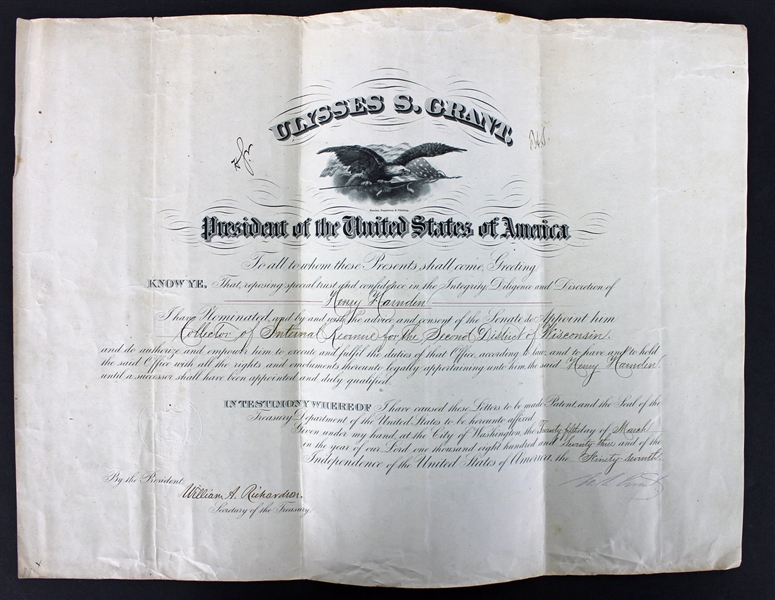 ULYSSES S. GRANT,
President of the United States of America
To all to whom these Presents shall come, Greeting.
KNOW YE, That, reposing special trust and confidence in the Integrity, Diligence and Discretion of
Henry Harnden
I have Nominated, and by and with the advice and consent of the Senate do Appoint him
Collector of Internal Revenue for the Second District of Wisconsin,
and do authorize and empower him to execute and fulfil the duties of that Office, according to law: and to have and to hold
the said Office with all the rights and emoluments thereunto legally appertaining unto him the said Henry Harnden
until a successor shall have been appointed and duly qualified.
IN TESTIMONY WHEREOF I have caused these Letters to be made Patent, and the Seal of the
Treasury Department of the United States to be hereunto affixed.
Given under my hand, at the City of Washington, the day of March
in the year of our Lord one thousand eight hundred and seventy three and of the
Independence of the United States of America, the Ninety seventh
By the President,
William A. Richardson.
Secretary of the Treasury.
U.S. Grant